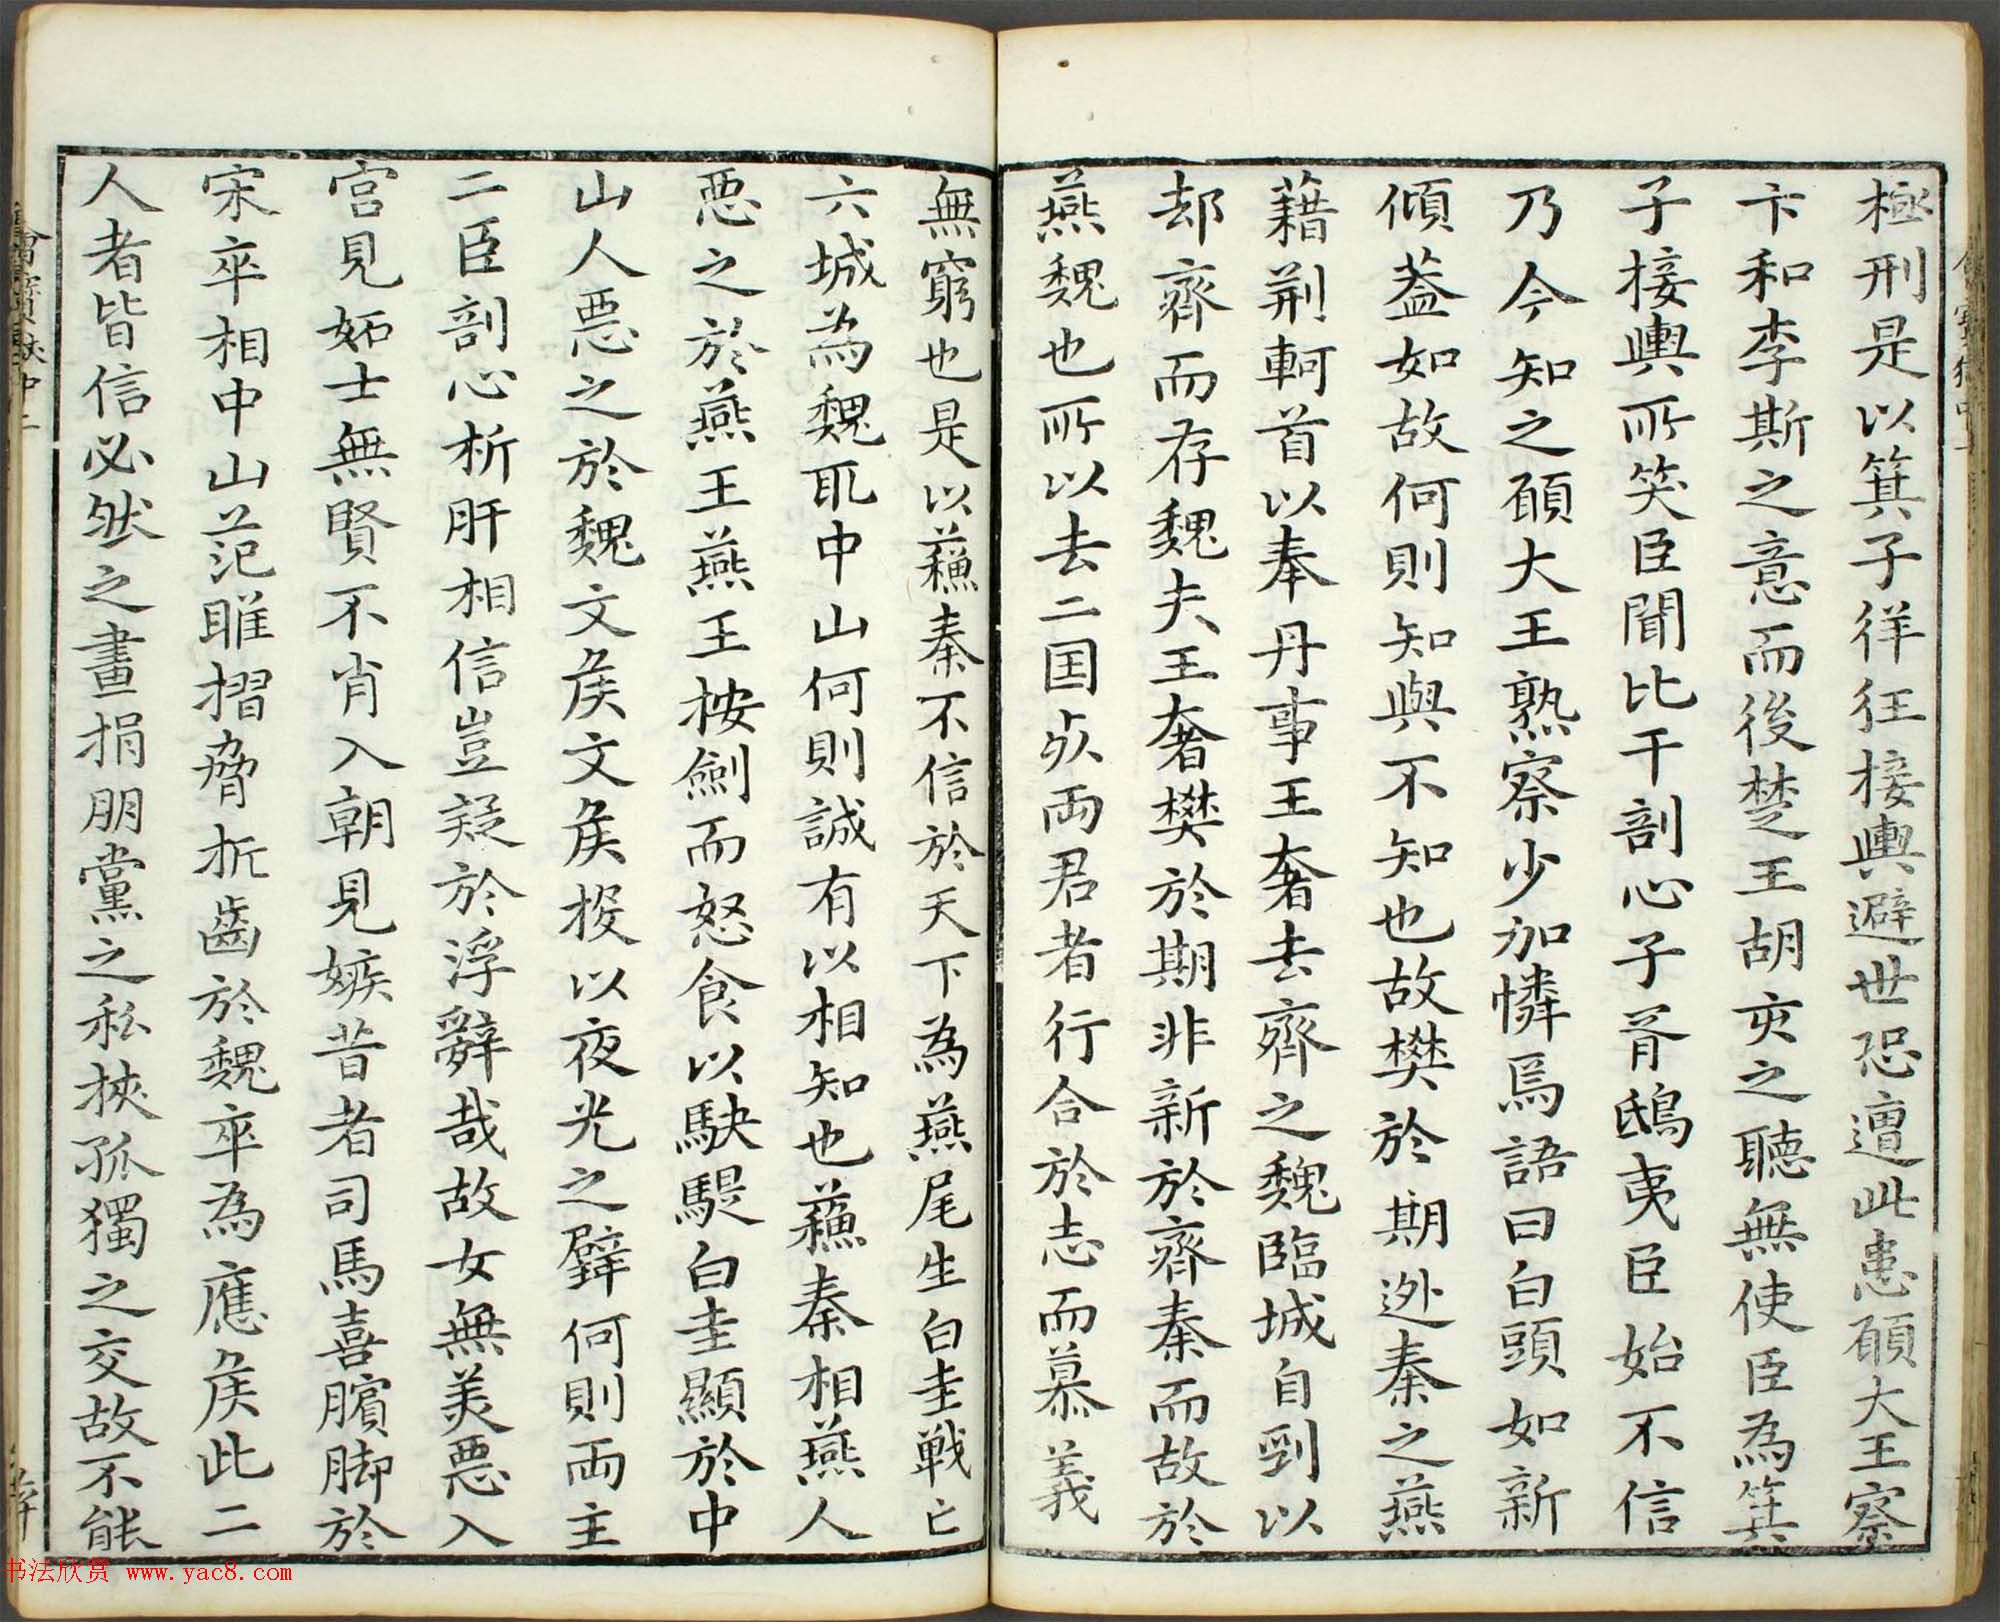 極刑是以箕子徉狂接輿避世恐遭此患願大王察
卞和李斯之意而後楚王胡亥之聽無使臣為箕
子接輿所笑臣聞比干剖心子胥鴟夷臣始不信
乃今知之願大王熟察少加憐焉語曰白頭如新
傾蓋如故何則知與不知也故樊於期逃秦之燕
藉荆軻首以奉丹事王奢去齊之魏臨城自剄以
却齊而存魏夫王奢樊於期非新於齊秦而故於
燕魏也所以去二国死兩君者行合於志而慕義
無窮也是以蘓秦不信於天下為燕尾生白圭戰亡
六城為魏取中山何則誠有以相知也蘓秦相燕人
惡之於燕王燕王按劍而怒食以駃騠白圭顯於中
山人惡之於魏文侯文侯投以夜光之璧何則兩主
二臣剖心析肝相信豈疑於浮辭哉故女無美惡入
宮見妬士無賢不肖入朝見嫉昔者司馬喜臏脚於
宋卒相中山范雎摺脅折齒於魏卒為應侯此二
人者皆信必然之畫捐朋黨之私挾孤獨之交故不能
书法欣赏 www.yac8.com